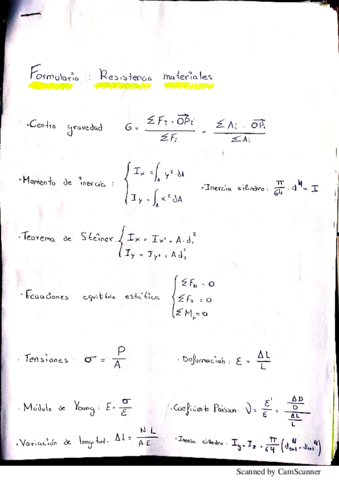 Formulario : Resistencia materiales
·Centro gravedad G = ΣFi · OPi / ΣFi = ΣAi · OPi / ΣAi
·Momento de inercia : { Ix = ∫A y² dA
Iy = ∫A x² dA
·Inercia cilindro: π/64 · d⁴ = I
·Teorema de Steiner { Ix = Ix' + A·di²
Iy = Iy' + A di²
·Ecuaciones equilibrio estática { ΣFH = 0
ΣFv = 0
ΣM = 0
·Tensiones: σ = P/A
·Deformación: ε = ΔL/L
·Módulo de Young: E = σ/ε
·Coeficiente Poisson: ν = ε'/ε = (ΔD/D)/(ΔL/L)
·Variación de longitud: ΔL = N L / A E
·Inercia cilindro: Iy = Iz = π/64 (d⁴ext - dint⁴)
Scanned by CamScanner